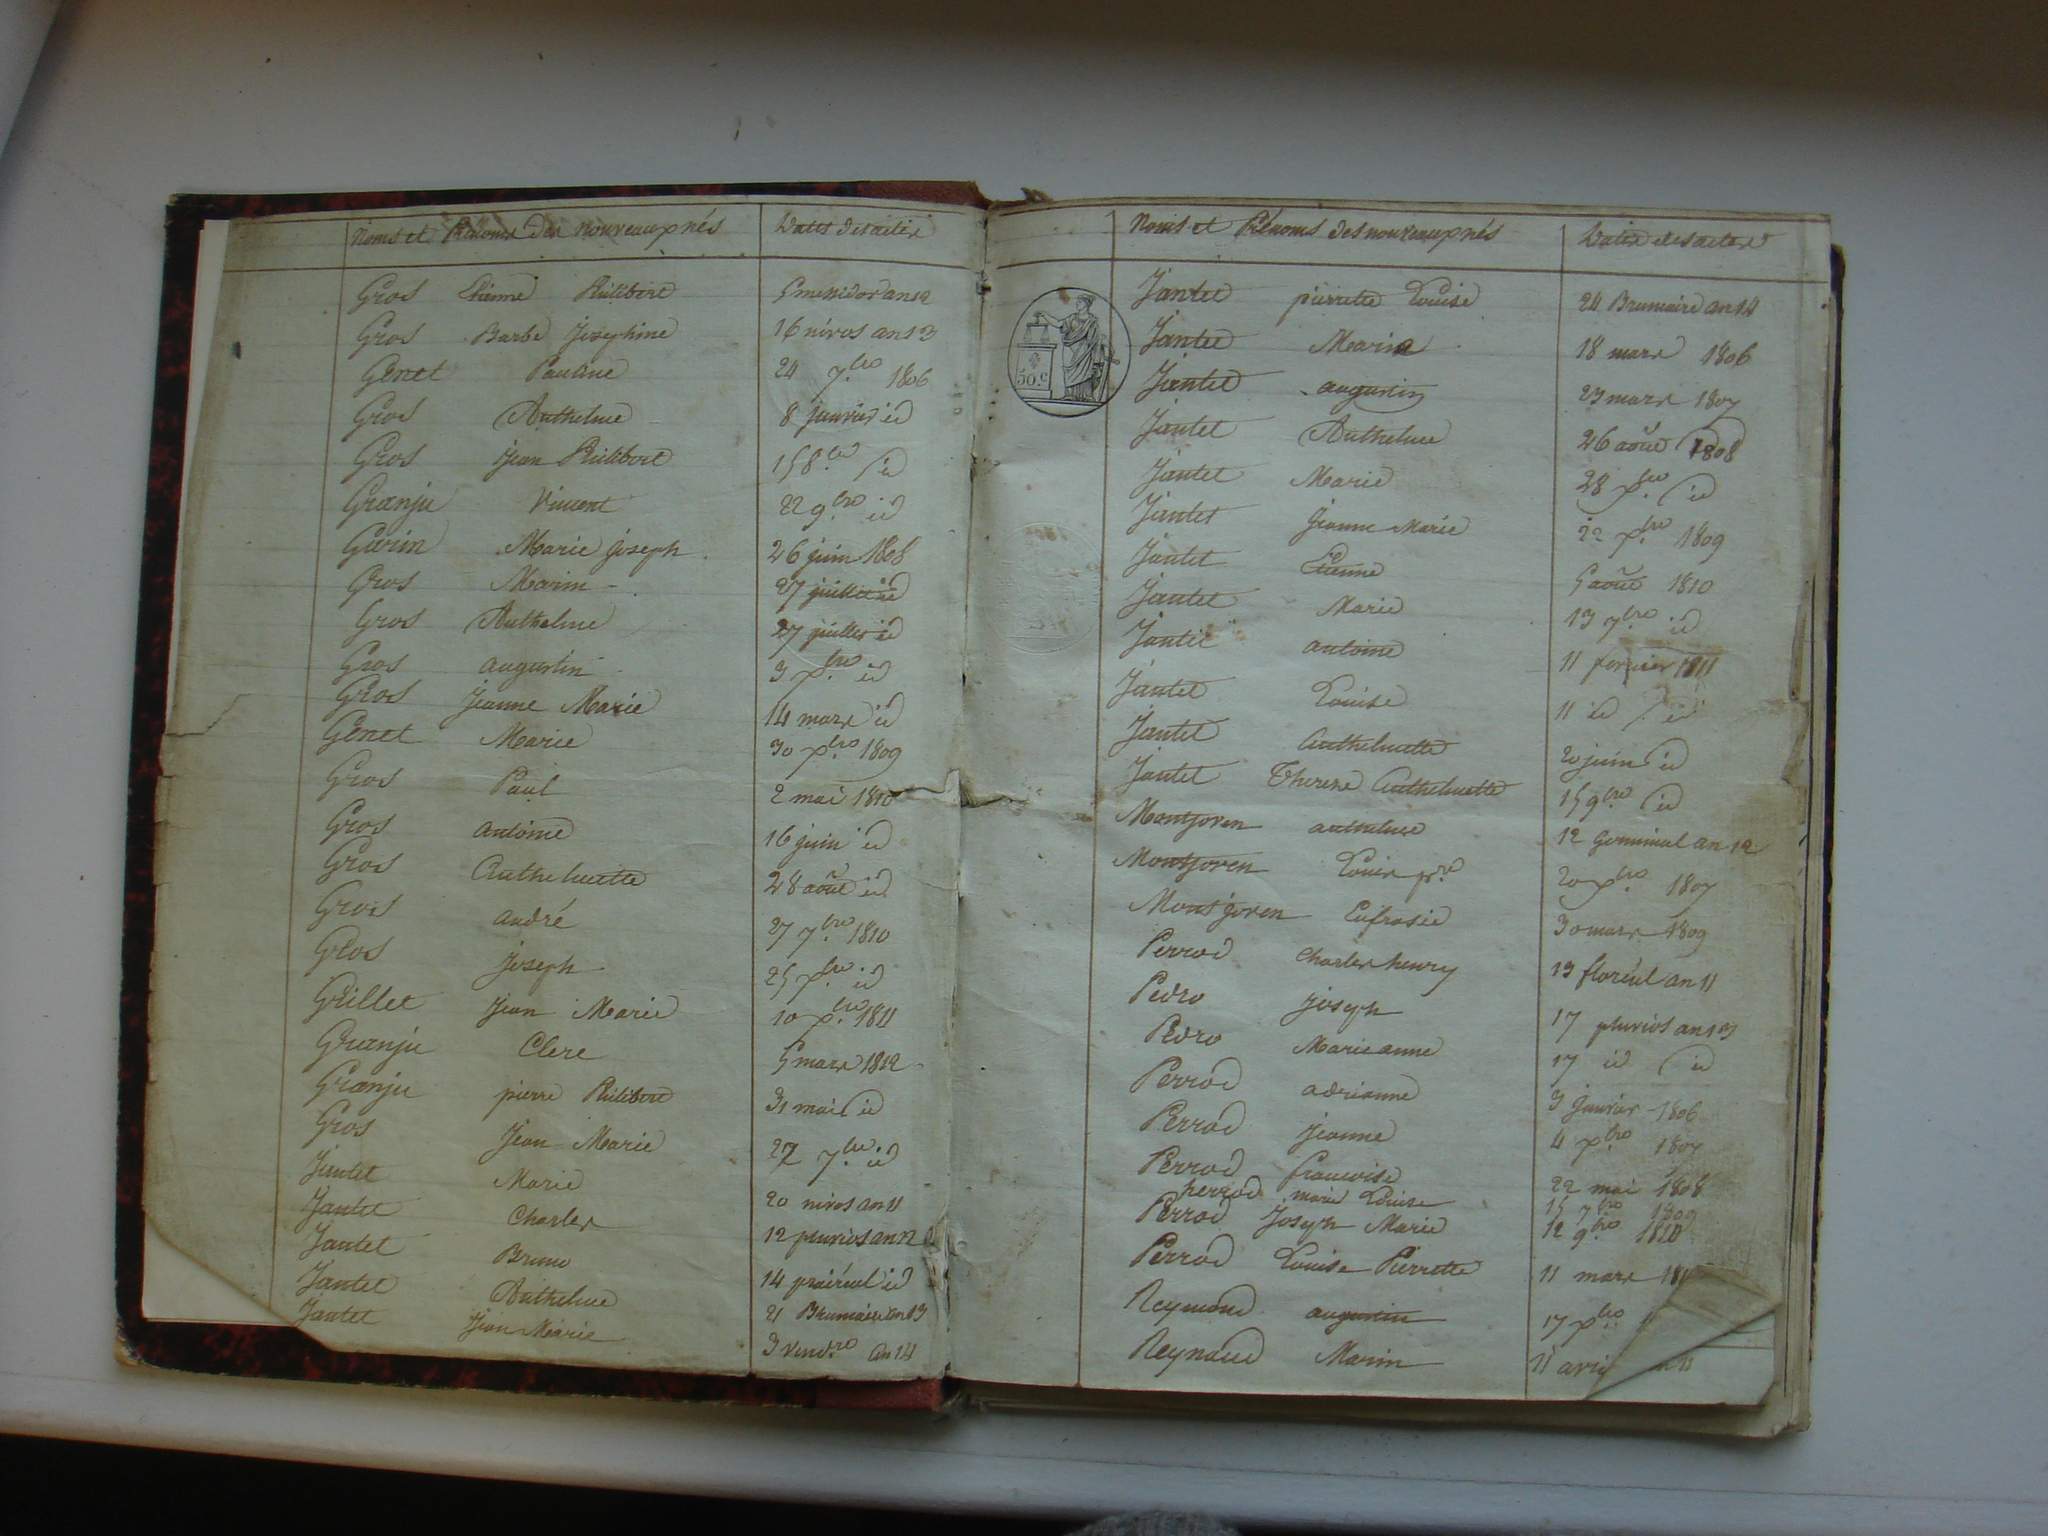 Noms et Prénoms des nouveaux nés Dates des actes
Gros Etienne Philibert 5 messidor an 12
Gros Barbe Josephine 16 nivos an 13
Genet Pauline 24 7.bre 1806
Gros Anthelme 8 janvier id
Gros Jean Philibert 15 8.bre id
Granju Vincent 22 9.bre id
Guérin Marie Joseph 26 juin 1808
Gros Marin 27 juillet id
Gros Anthelme 27 juillet id
Gros augustin 3 x.bre id
Gros Jeanne Marie 14 mars id
Genet Marie 30 x.bre 1809
Gros Paul 2 mai 1810
Gros antoine 16 juin id
Gros Anthelmette 28 août id
Gros andré 27 7.bre 1810
Gros Joseph 25 x.bre id
Grillet Jean Marie 10 x.bre 1811
Granju Clere 5 mars 1812
Granju pierre Philibert 31 mai id
Gros Jean Marie 27 7.bre id
Jantet Marie 20 nivos an 11
Jantet Charles 12 pluvios an 12
Jantet Bruno 14 prairéal id
Jantet Anthelme 21 Brumaire an 13
Jantet Jean Marie 3 vend.re an 14
Noms et Prénoms des nouveaux nés Dates des actes
50.c
Jantet pierrette Louise 24 Brumaire an 14
Jantet Marin 18 mars 1806
Jantet augustin 23 mars 1807
Jantet Anthelme 26 août 1808
Jantet Marie 28 x.bre id
Jantet Jeanne Marie 22 x.bre 1809
Jantet Etienne 5 août 1810
Jantet Marie 13 7.bre id
Jantet antoine 11 fevrier 1811
Jantet Louise 11 id id
Jantet Anthelmette 20 juin id
Jantet Therese Anthelmette 15 9.bre id
Montjoven anthelme 12 Germinal an 12
Montjoven Louis p.re 20 x.bre 1807
Montjoven Eufrasie 30 mars 1809
Perrod Charles henry 13 floréal an 11
Pedro Joseph 17 pluvios an 13
Pedro Marie anne 17 id id
Perrod adrianne 3 janvier 1806
Perrod Jeanne 4 x.bre 1807
Perrod francoise 22 mai 1808
perrod marie Louise 15 7.bre 1809
Perrod Joseph Marie 12 9.bre 1810
Perrod Louise Pierrette 11 mars
Reymond augustin 17 x.bre
Reynaud Marin 11